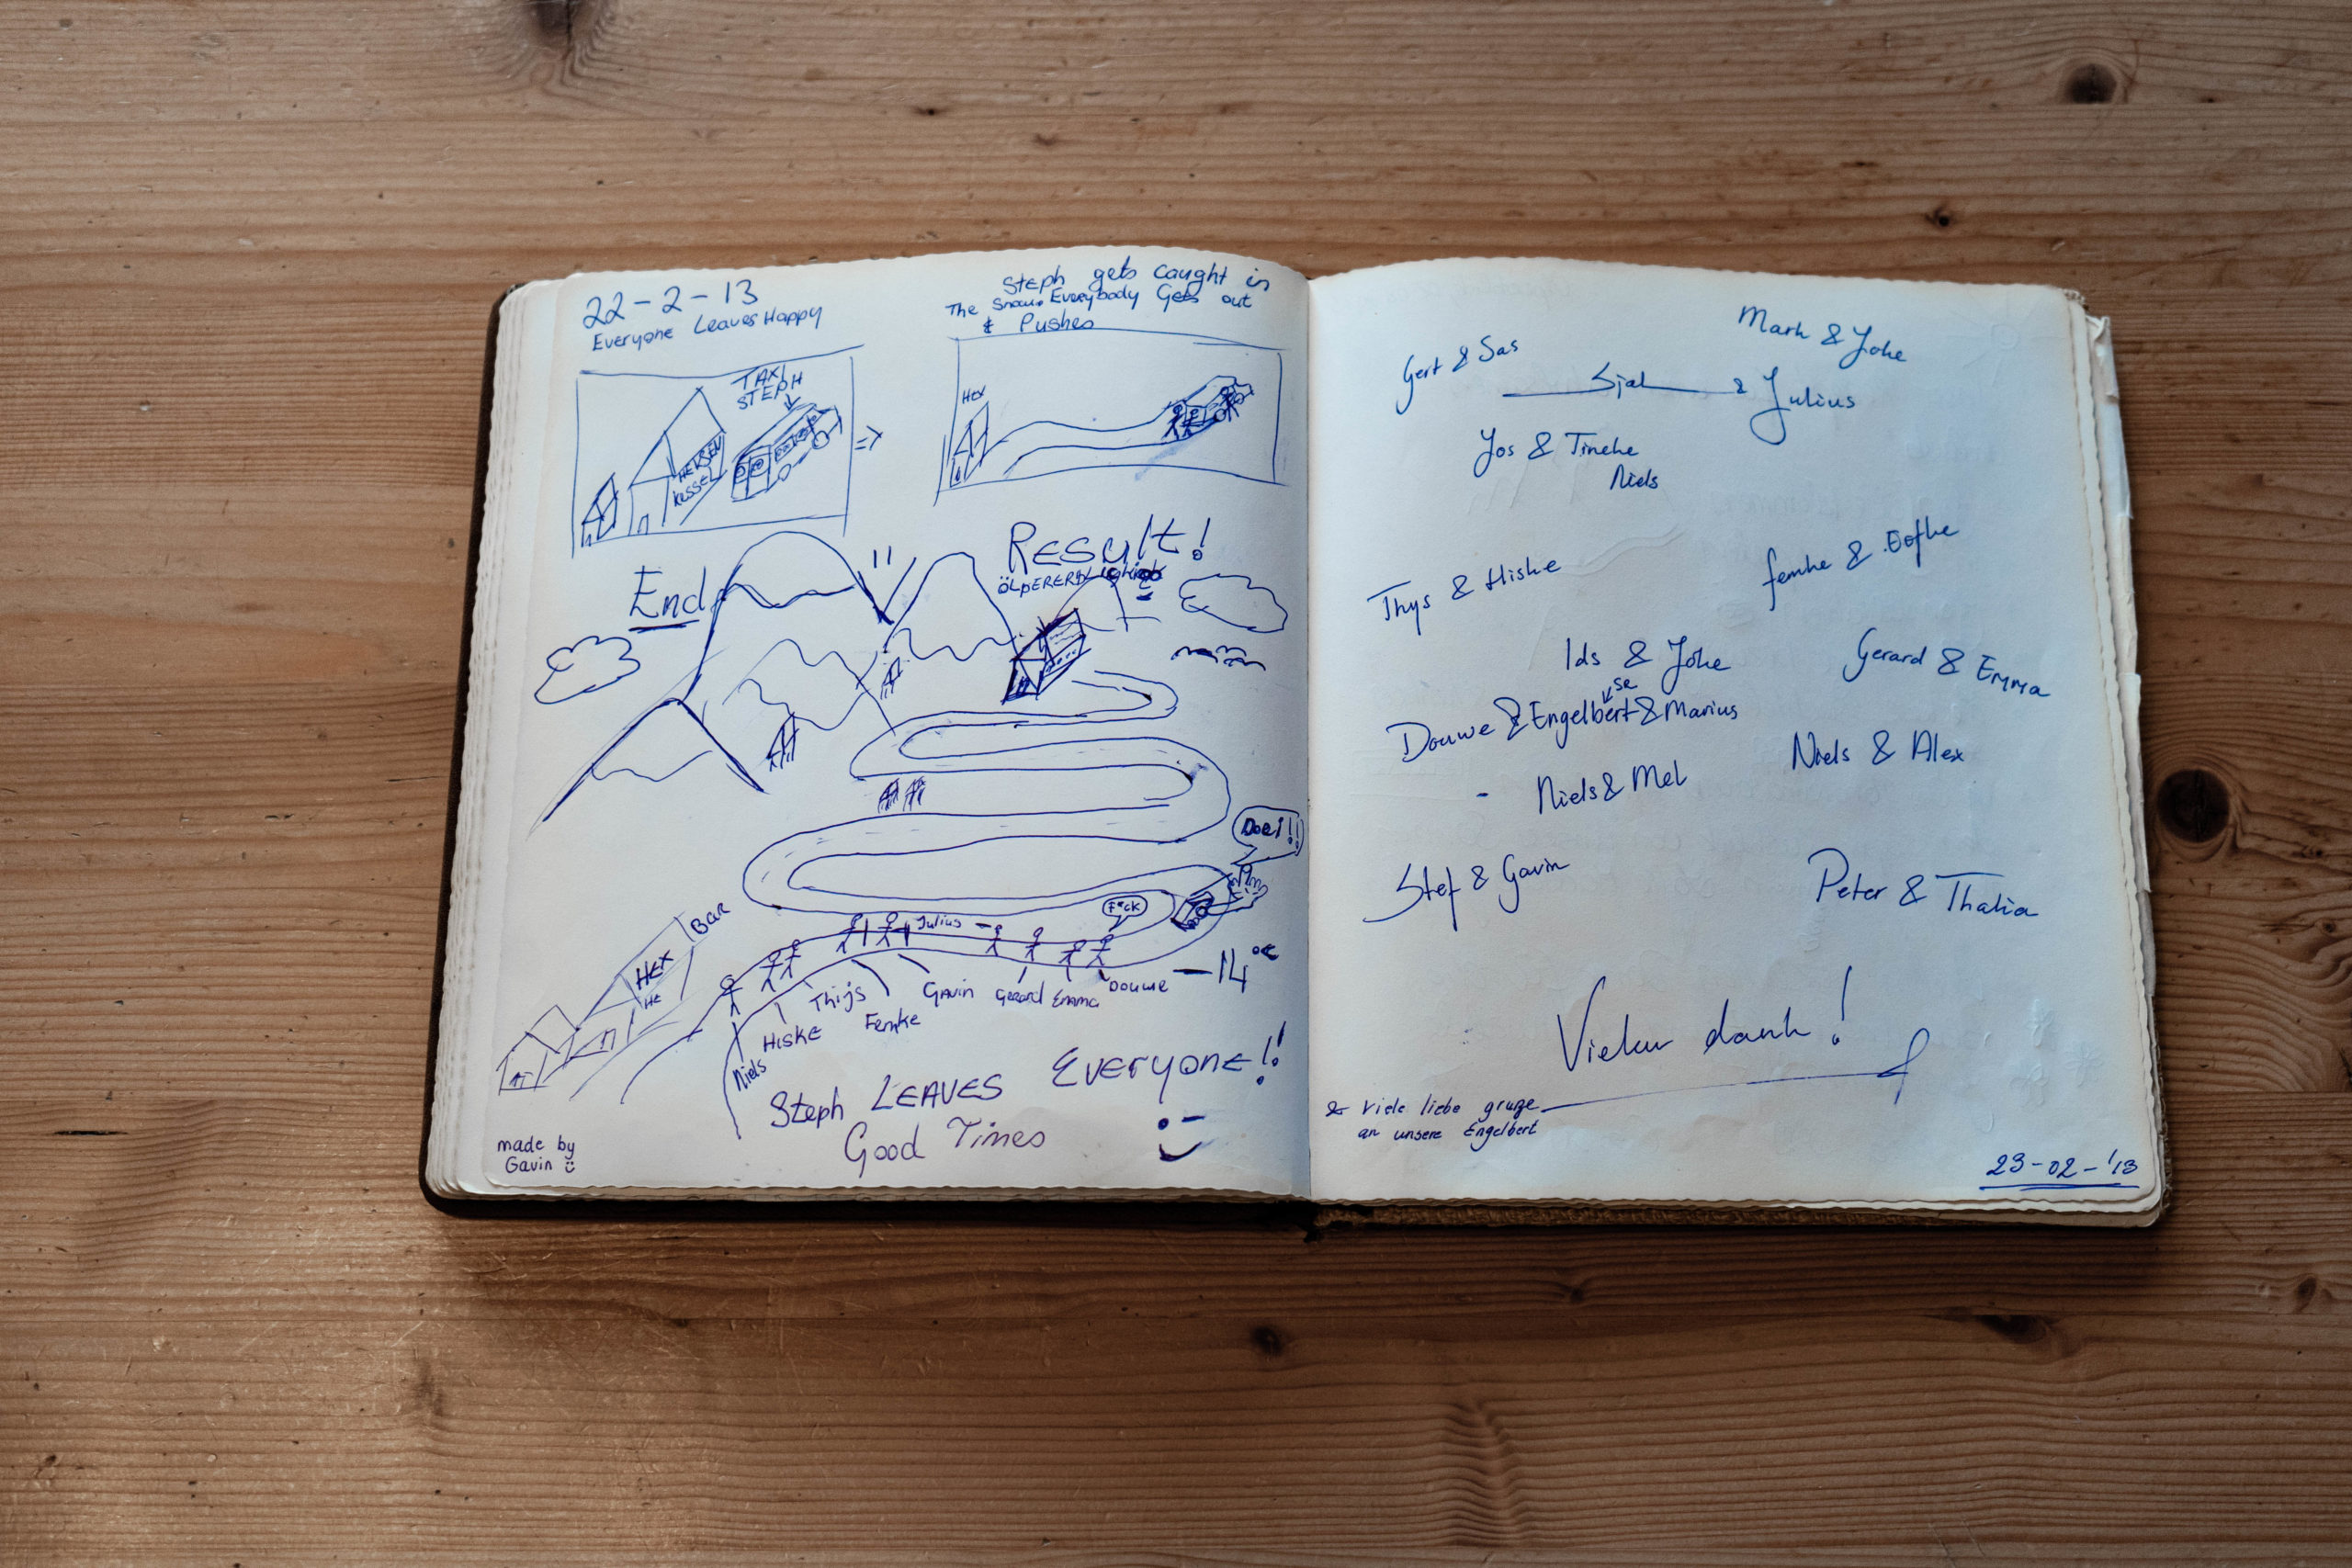 22-2-13
Everyone Leaves Happy
Steph gets caught in
The Snow. Everybody Gets out
& Pushes
TAXI
STEPH
HEKSEN
KESSEL
Hex
RESULT!
End
Doei!!
F*ck
Julius
BAR
HEX
He
-14°C
Douwe
Emma
Gerard
Gavin
Femke
Thijs
HISKE
Niels
Steph LEAVES EVERYONE!!
Good Times
made by
Gavin
Mark & Joke
Gert & Sas
Sjal & Julius
Jos & Tineke
Niels
Thys & Hiske
femke & Eefke
Ids & Joke
Gerard & Emma
se
Douwe & Engelbert & Marius
Niels & Alex
Niels & Mel
Stef & Gavin
Peter & Thalia
Vielen dank!
& viele liebe gruße
an unsere Engelbert
23-02-'13